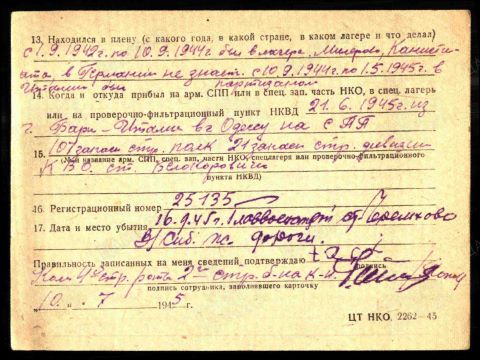 13. Находился в плену (с какого года, в какой стране, в каком лагере и что делал)
с 1.9.1942г. по 10.9.1944г был в лагере
в Германии не знает. с 10.9.1944г по 1.5.1945г. в
Италии был партизаном
14. Когда и откуда прибыл на арм. СПП или в спец. зап. часть НКО, в спец. лагерь
или на проверочно-фильтрационный пункт НКВД 21.6.1945г из
г Бари-Италии в г Одессу на с А П
107 запасн стр. полк 21 запасн стр. дивизии
15.
(или название арм. СПП, спец. зап. части НКО, спецлагеря или проверочно-фильтрационного
К В О. ст. Белокоровичи
пункта НКВД)
16. Регистрационный номер 25135
17. Дата и место убытия 16.9.45г. ст Черемхово
В/Сиб. ж. дороги.
Правильность записанных на меня сведений подтверждаю
подпись
Ком 4й стр. роты 2го стр. б-на к-н
подпись сотрудника, заполнявшего карточку
„10„ 7 1945 г.
ЦТ НКО. 2262—45